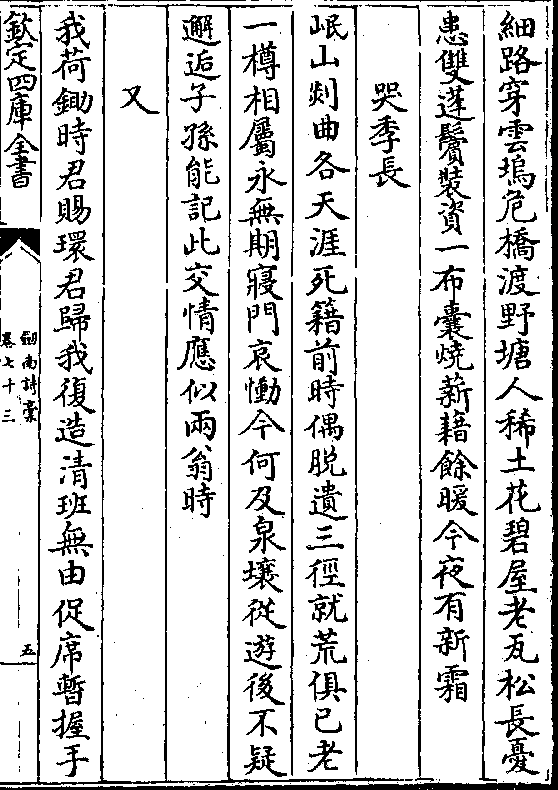 細路穿雲塢危橋渡野塘人稀土花碧屋老瓦松長憂
患雙蓬鬢裝資一布囊燒薪藉餘暖今夜有新霜
哭季長
岷山剡曲各天涯死籍前時偶脫遺三徑就荒俱已老
一樽相屬永無期寢門哀慟今何及泉壤從遊後不疑
邂逅子孫能記此交情應似兩翁時
又
我荷鋤時君賜環君歸我復造清班無由促席暫握手
欽定四庫全書
劒南詩藁
卷七十三
五